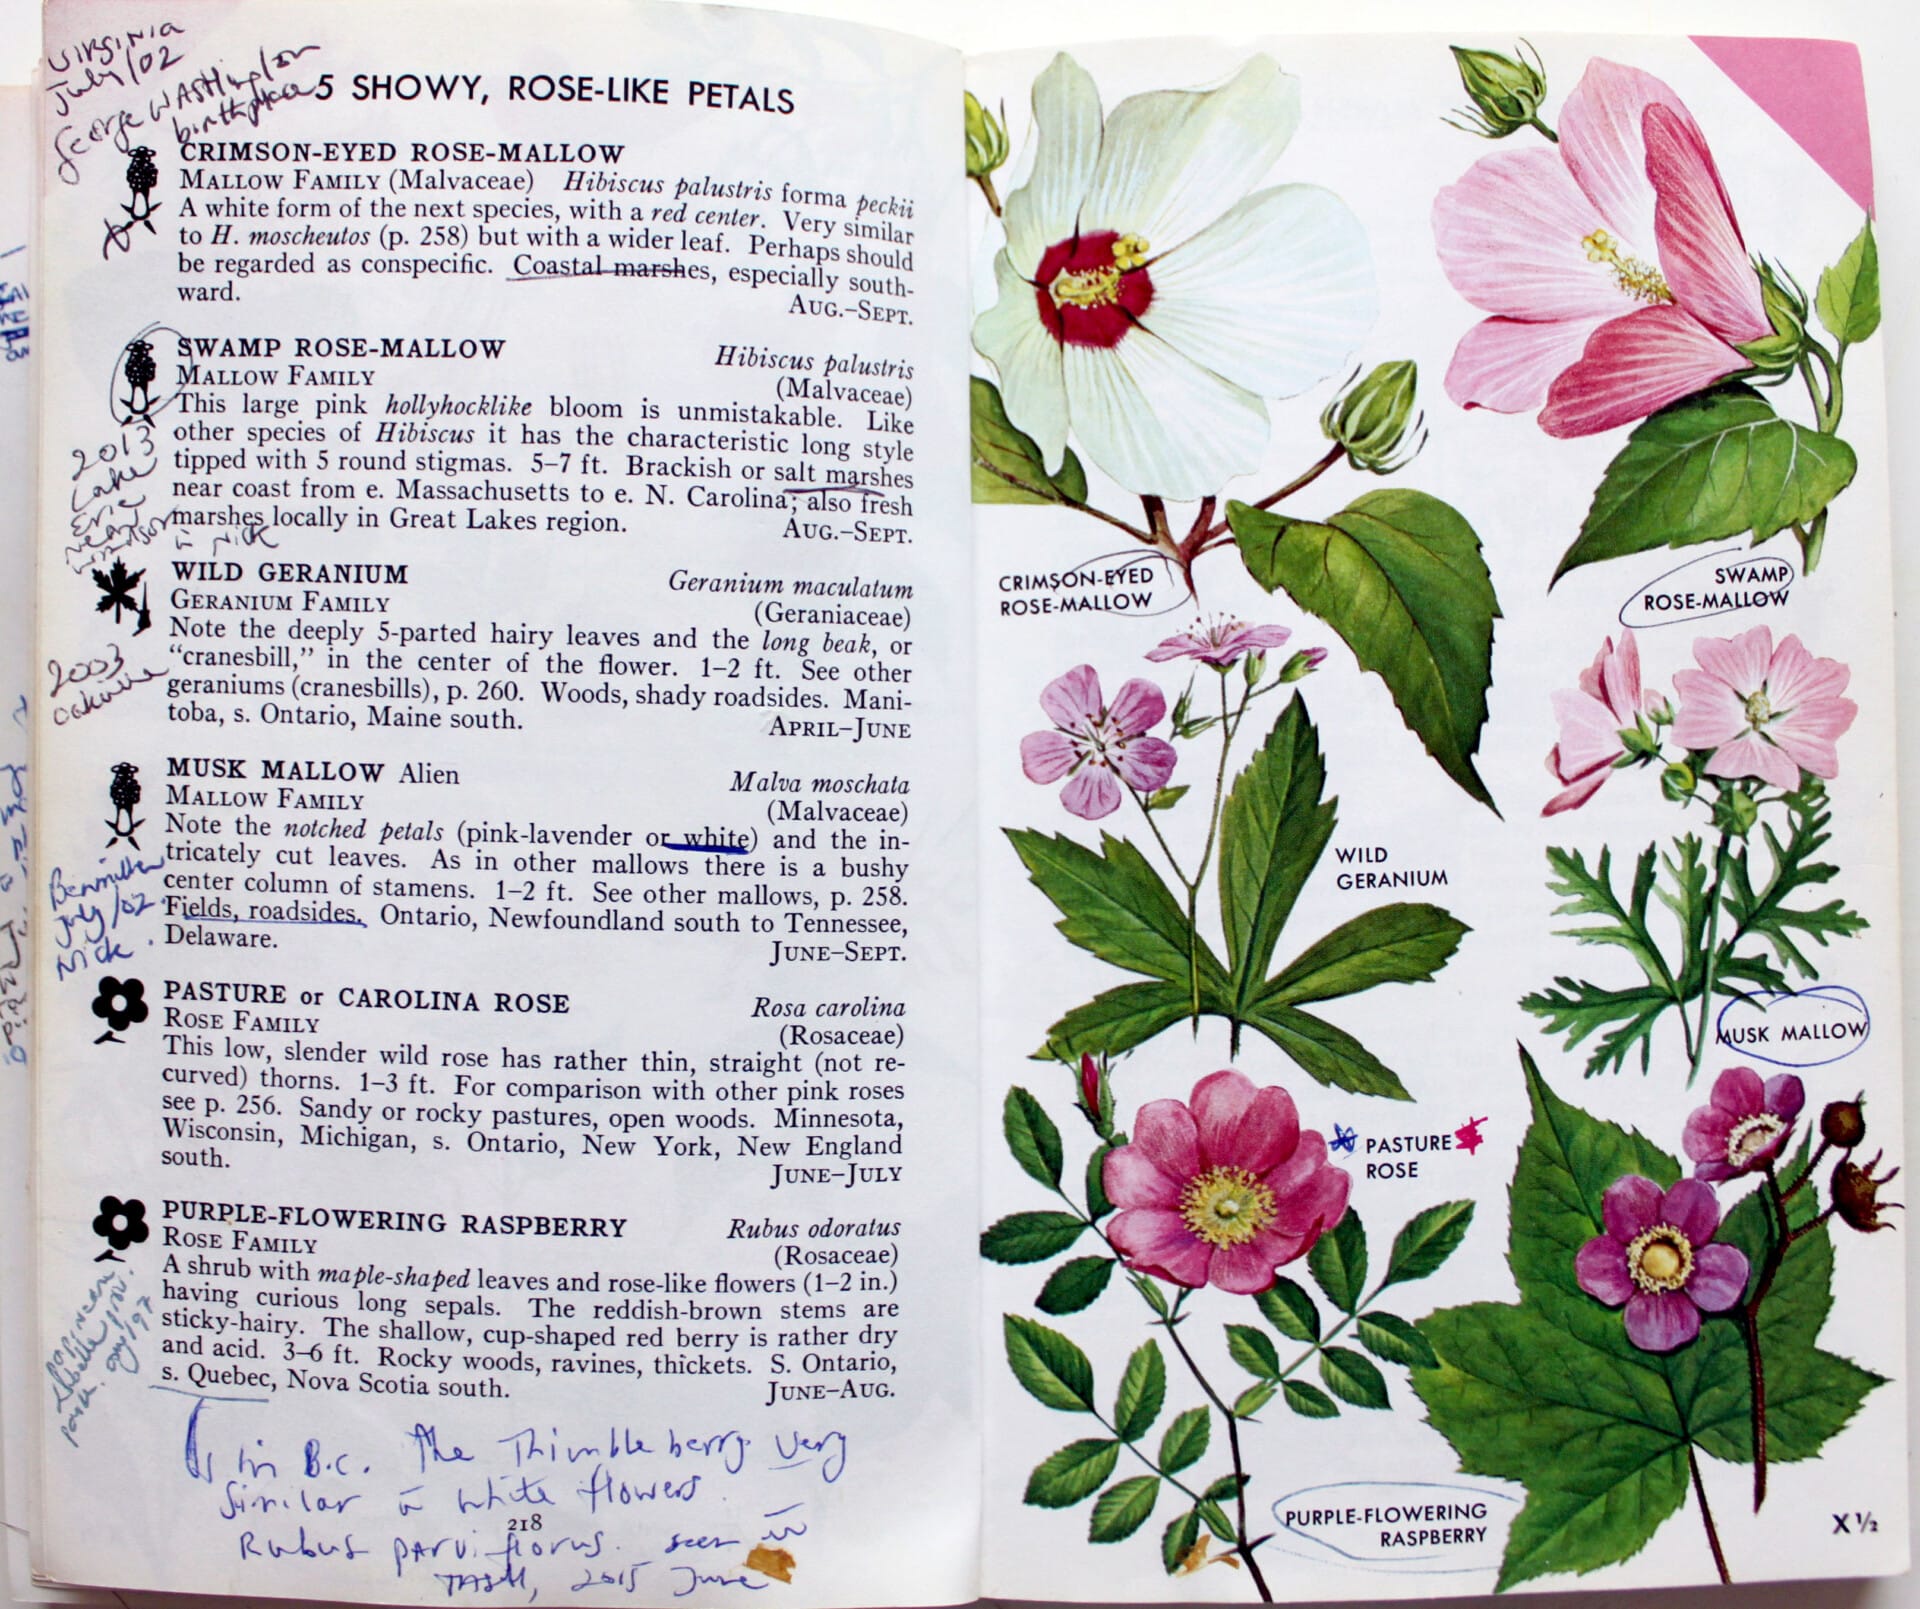 VIRGINIA
July/02
George WASHington
birthplace
5 SHOWY, ROSE-LIKE PETALS
CRIMSON-EYED ROSE-MALLOW
MALLOW FAMILY (Malvaceae) Hibiscus palustris forma peckii
A white form of the next species, with a red center. Very similar
to H. moscheutos (p. 258) but with a wider leaf. Perhaps should
be regarded as conspecific. Coastal marshes, especially south-
ward. AUG.–SEPT.
SWAMP ROSE-MALLOW Hibiscus palustris
MALLOW FAMILY (Malvaceae)
This large pink hollyhocklike bloom is unmistakable. Like
other species of Hibiscus it has the characteristic long style
tipped with 5 round stigmas. 5–7 ft. Brackish or salt marshes
near coast from e. Massachusetts to e. N. Carolina; also fresh
marshes locally in Great Lakes region. AUG.–SEPT.
2013
Lake
Erie
near
Windsor
Nick
WILD GERANIUM Geranium maculatum
GERANIUM FAMILY (Geraniaceae)
Note the deeply 5-parted hairy leaves and the long beak, or
“cranesbill,” in the center of the flower. 1–2 ft. See other
geraniums (cranesbills), p. 260. Woods, shady roadsides. Mani-
toba, s. Ontario, Maine south. APRIL–JUNE
2003
oakville
MUSK MALLOW Alien Malva moschata
MALLOW FAMILY (Malvaceae)
Note the notched petals (pink-lavender or white) and the in-
tricately cut leaves. As in other mallows there is a bushy
center column of stamens. 1–2 ft. See other mallows, p. 258.
Fields, roadsides. Ontario, Newfoundland south to Tennessee,
Delaware. JUNE–SEPT.
Benmiller
July/02
Nick
PASTURE or CAROLINA ROSE Rosa carolina
ROSE FAMILY (Rosaceae)
This low, slender wild rose has rather thin, straight (not re-
curved) thorns. 1–3 ft. For comparison with other pink roses
see p. 256. Sandy or rocky pastures, open woods. Minnesota,
Wisconsin, Michigan, s. Ontario, New York, New England
south. JUNE–JULY
PURPLE-FLOWERING RASPBERRY Rubus odoratus
ROSE FAMILY (Rosaceae)
A shrub with maple-shaped leaves and rose-like flowers (1–2 in.)
having curious long sepals. The reddish-brown stems are
sticky-hairy. The shallow, cup-shaped red berry is rather dry
and acid. 3–6 ft. Rocky woods, ravines, thickets. S. Ontario,
s. Quebec, Nova Scotia south. JUNE–AUG.
Papineau
Labelle prov.
park
in B.C. The Thimbleberry very
similar white flowers.
218
Rubus parviflorus. seen in
2015 June
CRIMSON-EYED
ROSE-MALLOW
SWAMP
ROSE-MALLOW
WILD
GERANIUM
MUSK MALLOW
PASTURE
ROSE
PURPLE-FLOWERING
RASPBERRY
X ½